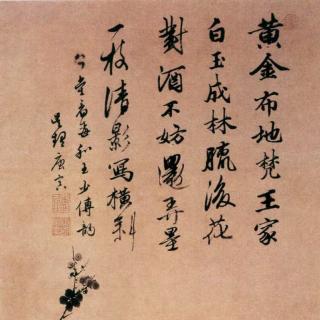 黃金布地梵王家
白玉成林臘後花
對酒不妨還弄墨
一枝清影寫橫斜
堂看梅和王少傅韵
吳趨唐寅